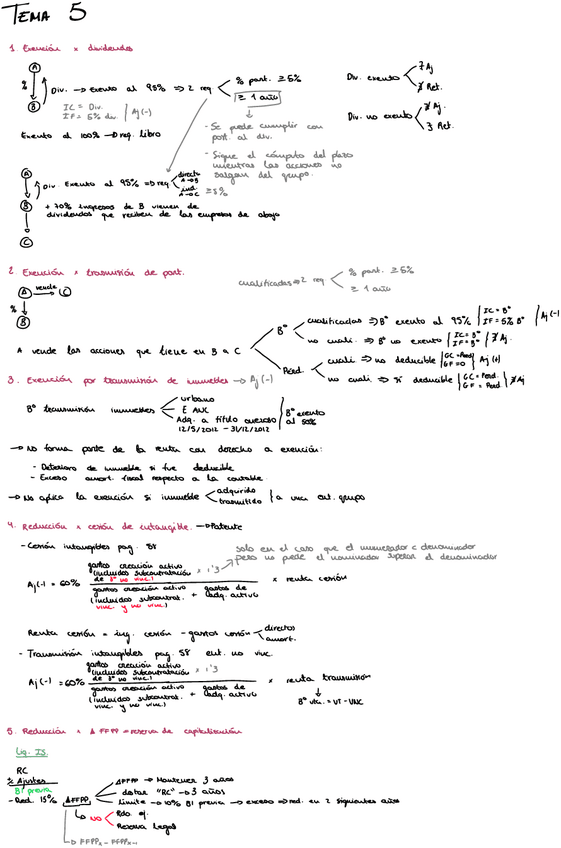 TEMA 5
1. Exención x dividendos
A
%
B
Div. → Exento al 95% ⇒ 2 req
% part. ≥ 5%
≥ 1 año
IC = Div.
IF = 5% div.
Aj (-)
Exento al 100% → req. libro
- Se puede cumplir con post. al div.
- Sigue el cómputo del plazo
mientras las acciones no
salgan del grupo.
Div. exento
∄ Aj
∄ Ret.
Div. no exento
∄ Aj.
∃ Ret.
A
B
C
Div. Exento al 95% ⇒ req
directo
A→B
ind.
A→C
≥ 5%
+ 70% ingresos de B vienen de
dividendos que reciben de las empresas de abajo
2. Exención x trasmisión de part.
A vende C
%
B
cualificadas ⇒ 2 req
% part. ≥ 5%
≥ 1 año
A vende las acciones que tiene en B a C
Bº
cualificadas ⇒ Bº exento al 95%
IC = Bº
IF = 5% Bº
Aj (-)
no cuali. ⇒ Bº no exento
IC = Bº
IF = Bº
∄ Aj.
Pérd.
cuali ⇒ no deducible
GC = Pérd
GF = 0
Aj (+)
no cuali ⇒ sí deducible
GC = Pérd.
GF = Pérd.
∄ Aj
3. Exención por transmisión de inmuebles → Aj (-)
Bº transmisión inmuebles
urbano
E ANC
Adq. a título oneroso
12/5/2012 - 31/12/2012
Bº exento
al 50%
→ No forma parte de la renta con derecho a exención:
- Deterioro de inmueble si fue deducible
- Exceso amort. fiscal respecto a la contable.
→ No aplica la exención si inmueble
adquirido
trasmitido
a una ent. grupo
4. Reducción x cesión de intangible. → Patente
- Cesión intangibles pag. 58
solo en el caso que el numerador < denominador
pero no puede el nominador superar el denominador
Aj (-) = 60%
gastos creación activo
(incluidos subcontratación
de 3º no vinc.)
x 1'3
gastos creación activo
(incluidos subcontrat.
vinc. y no vinc.)
+ gastos de
adq. activo
x renta cesión
Renta cesión = ing. cesión - gastos cesión
directos
amort.
- Transmisión intangibles pag. 58 ent. no vinc.
Aj (-) = 60%
gastos creación activo
(incluidos subcontratación
de 3º no vinc.)
x 1'3
gastos creación activo
(incluidos subcontrat.
vinc. y no vinc.)
+ gastos de
adq. activo
x renta transmisión
Bº vta. = VT - VNC
5. Reducción x Δ FFPP = reserva de capitalización
Liq. IS.
RC
± Ajustes
BI previa
- Red. 15% ΔFFPP
ΔFFPP → Mantener 3 años
dotar "RC" → 3 años
Límite → 10% BI previa → exceso ⇒ red. en 2 siguientes años
NO
Rdo. ej.
Reserva Legal